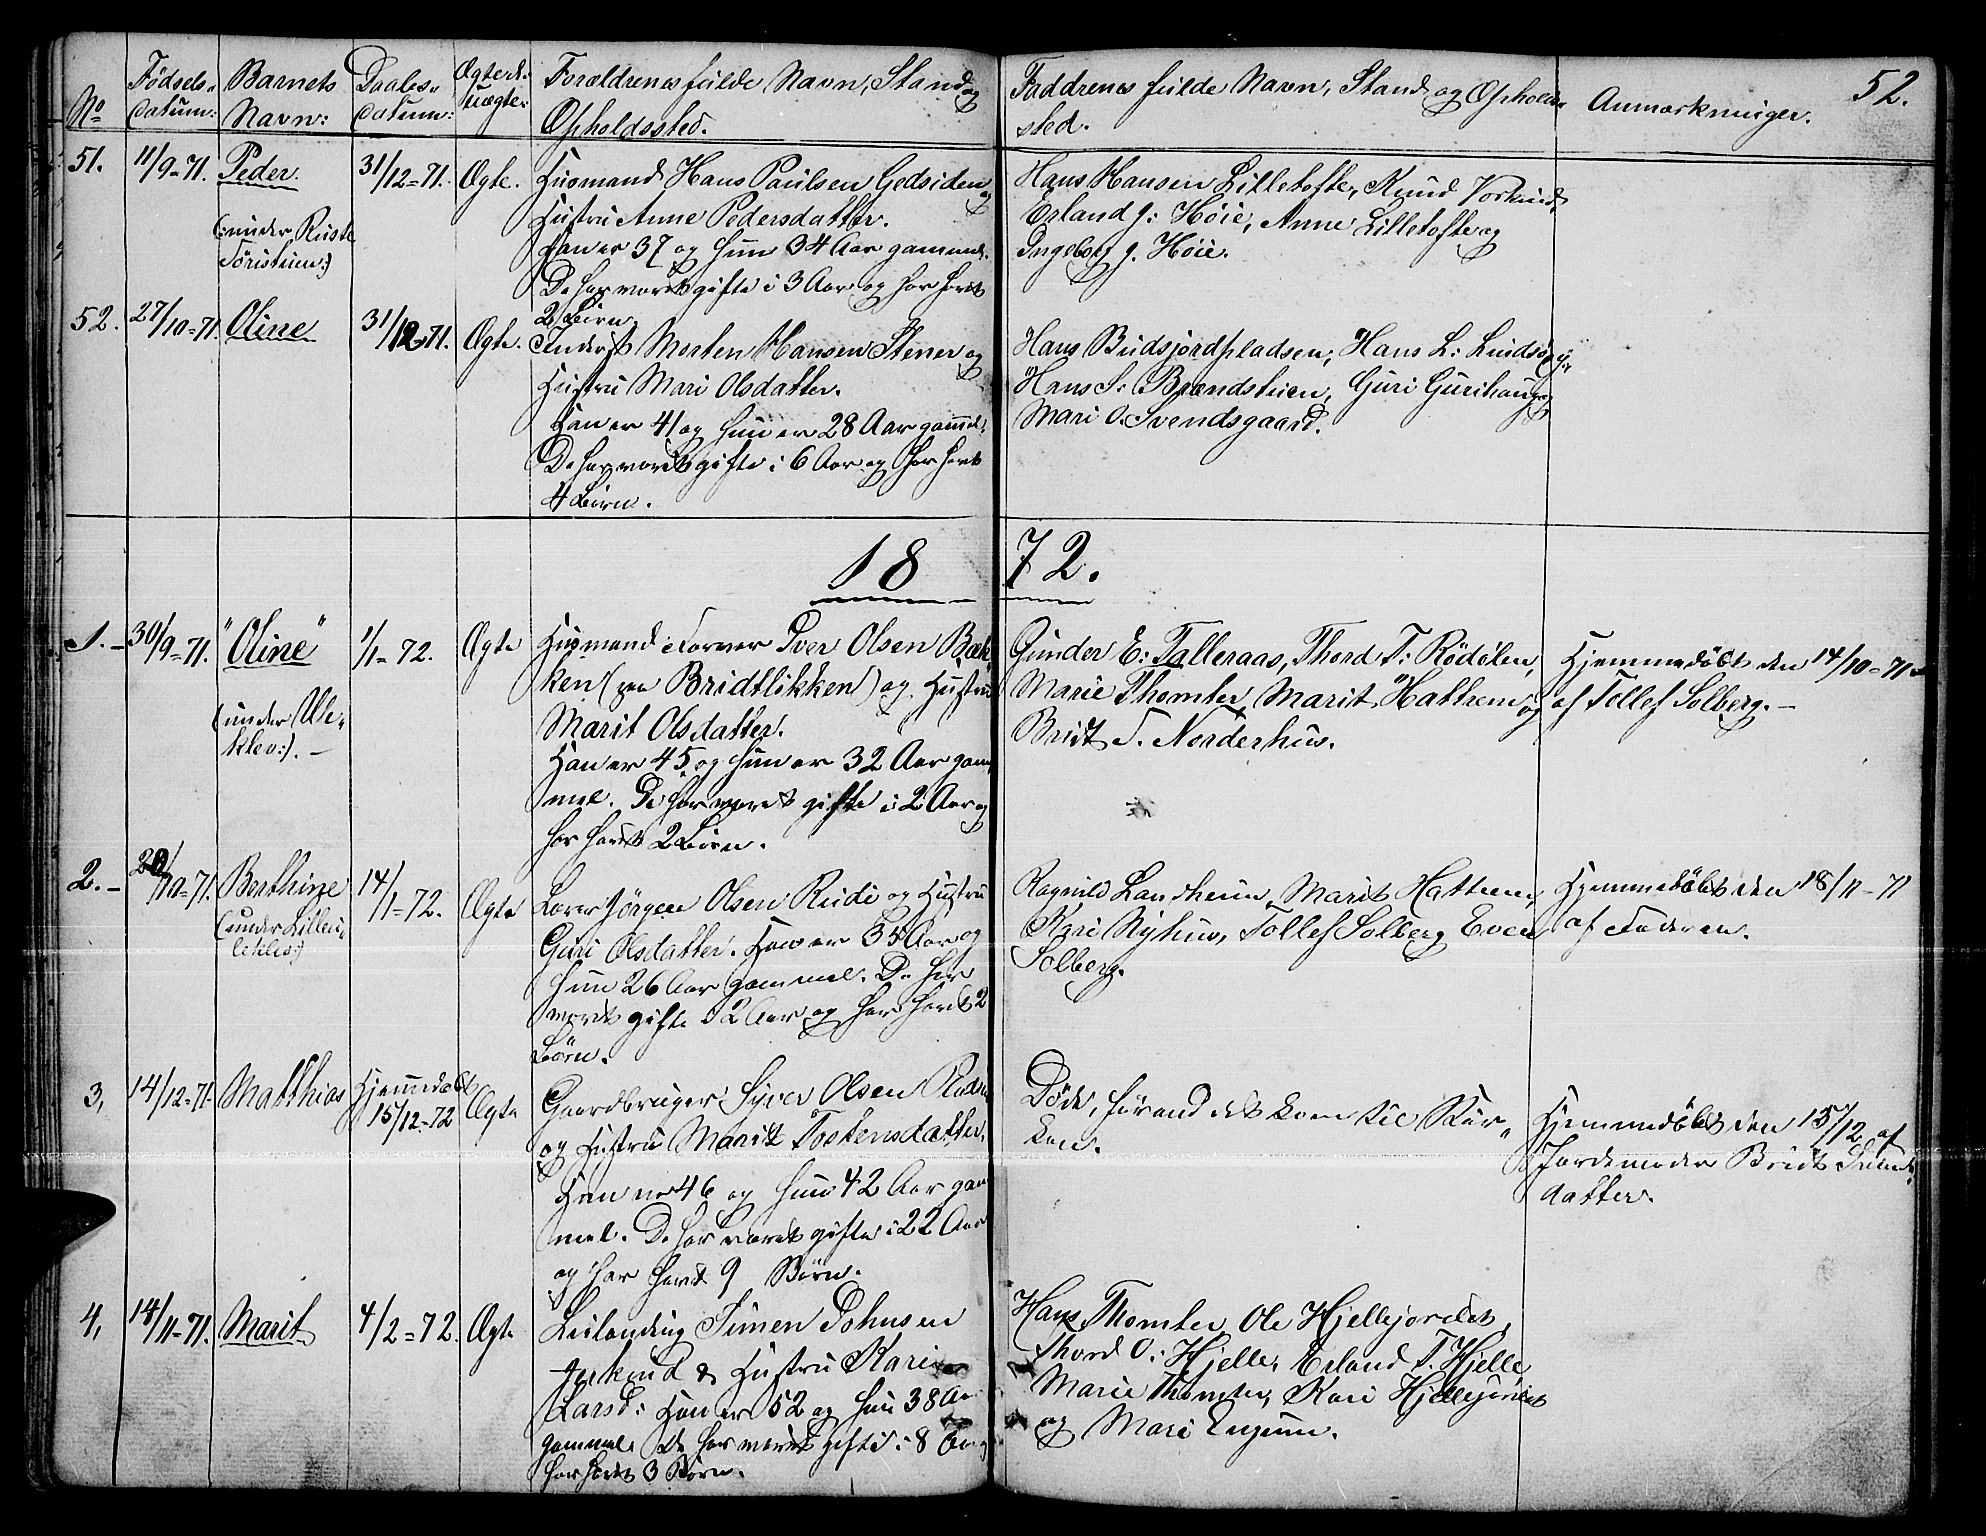 52.
No
Fødsels-
datum:
Barnets
Navn:
Daabs-
datum:
Ægte el.
uægte:
Forældrenes fulde Navn, Stand og
Opholdssted.
Faddrenes fulde Navn, Stand og Opholds
sted.
Anmærkninger.
51.
11/9-71.
Peder
(:under Ruste
31/12-71.
Ægte.
Husmand Hans Paulsen Gedsiden og
Hustru Anne Pedersdatter.
Han er 37 og hun 34 Aar gammel.
De har været gifte i 3 Aar og har havt
2 Børn.
Hans Hansen Lilletofte, Knud
Erland J: Høie, Anne Lilletofte og
Ingeborg J. Høie.
52.
27/10-71.
Oline
31/12-71.
Ægte.
Inderst Morten Hansen Stener og
Hustru Mari Olsdatter.
Han er 41 og hun er 28 Aar gammel.
De har været gifte i 6 Aar og har havt
4 Børn.
Hans Budsjordpladsen, Hans L:
Hans S: Brændstuen, Guri Gurihaug og
Mari O. Svendsgaard.
1872.
1.-
30/9-71.
"Oline"
(:under Ule-
klev:).-
1/1-72.
Ægte
Husmand Iver Olsen Bæk-
ken (paa Bridtlikken) og Hustru
Marit Olsdatter.
Han er 45 og hun er 32 Aar gam-
mel. De har været gifte i 2 Aar og
har havt 2 Børn.
Gunder E: Talleraas, Thord T: Rødølen,
Marie Thomter, Marit Hattrem og
Bridt T. Norderhus.
Hjemmedøbt den 14/10-71
af Tollef Solberg.-
2.-
20/10-71.
Berthine
(:under Lille
14/1-72.
Ægte
Lærer Jørgen Olsen Rudi og Hustru
Guri Olsdatter. Han er 35 Aar og
hun 26 Aar gammel. De har
været gifte i 2 Aar og har havt 2
Børn.
Ragnild Landheim, Marit Hattrem,
Kari Nyhus, Tollef Solberg, Even
Solberg.
Hjemmedøbt den 18/11-71
af Faderen.
3,
14/12-71.
Matthias
Hjemmedøbt
15/12-72
Ægte
Gaardbruger Syver Olsen
og Hustru Marit Tostensdatter.
Han er 46 og hun 42 Aar gam-
mel. De har været gifte i 22 Aar
og har havt 9 Børn.
Døde, førend det kom til Kir-
ken.
Hjemmedøbt den 15/12 af
Jordemoder Bridt
datter.
4,
14/11-71.
Marit
4/2-72.
Ægte
Leilænding Simen Johnsen
& Hustru Kari
Larsd: Han er 52 og hun 38 Aar
gammel. De har været gifte i 8 Aar og
har havt 3 Børn.
Hans Thomter, Ole Hjellejordet,
Thord O: Hjelle, Erland T. Hjelle,
Marie Thomter, Kari Hjellejordet
og Mari Engum.